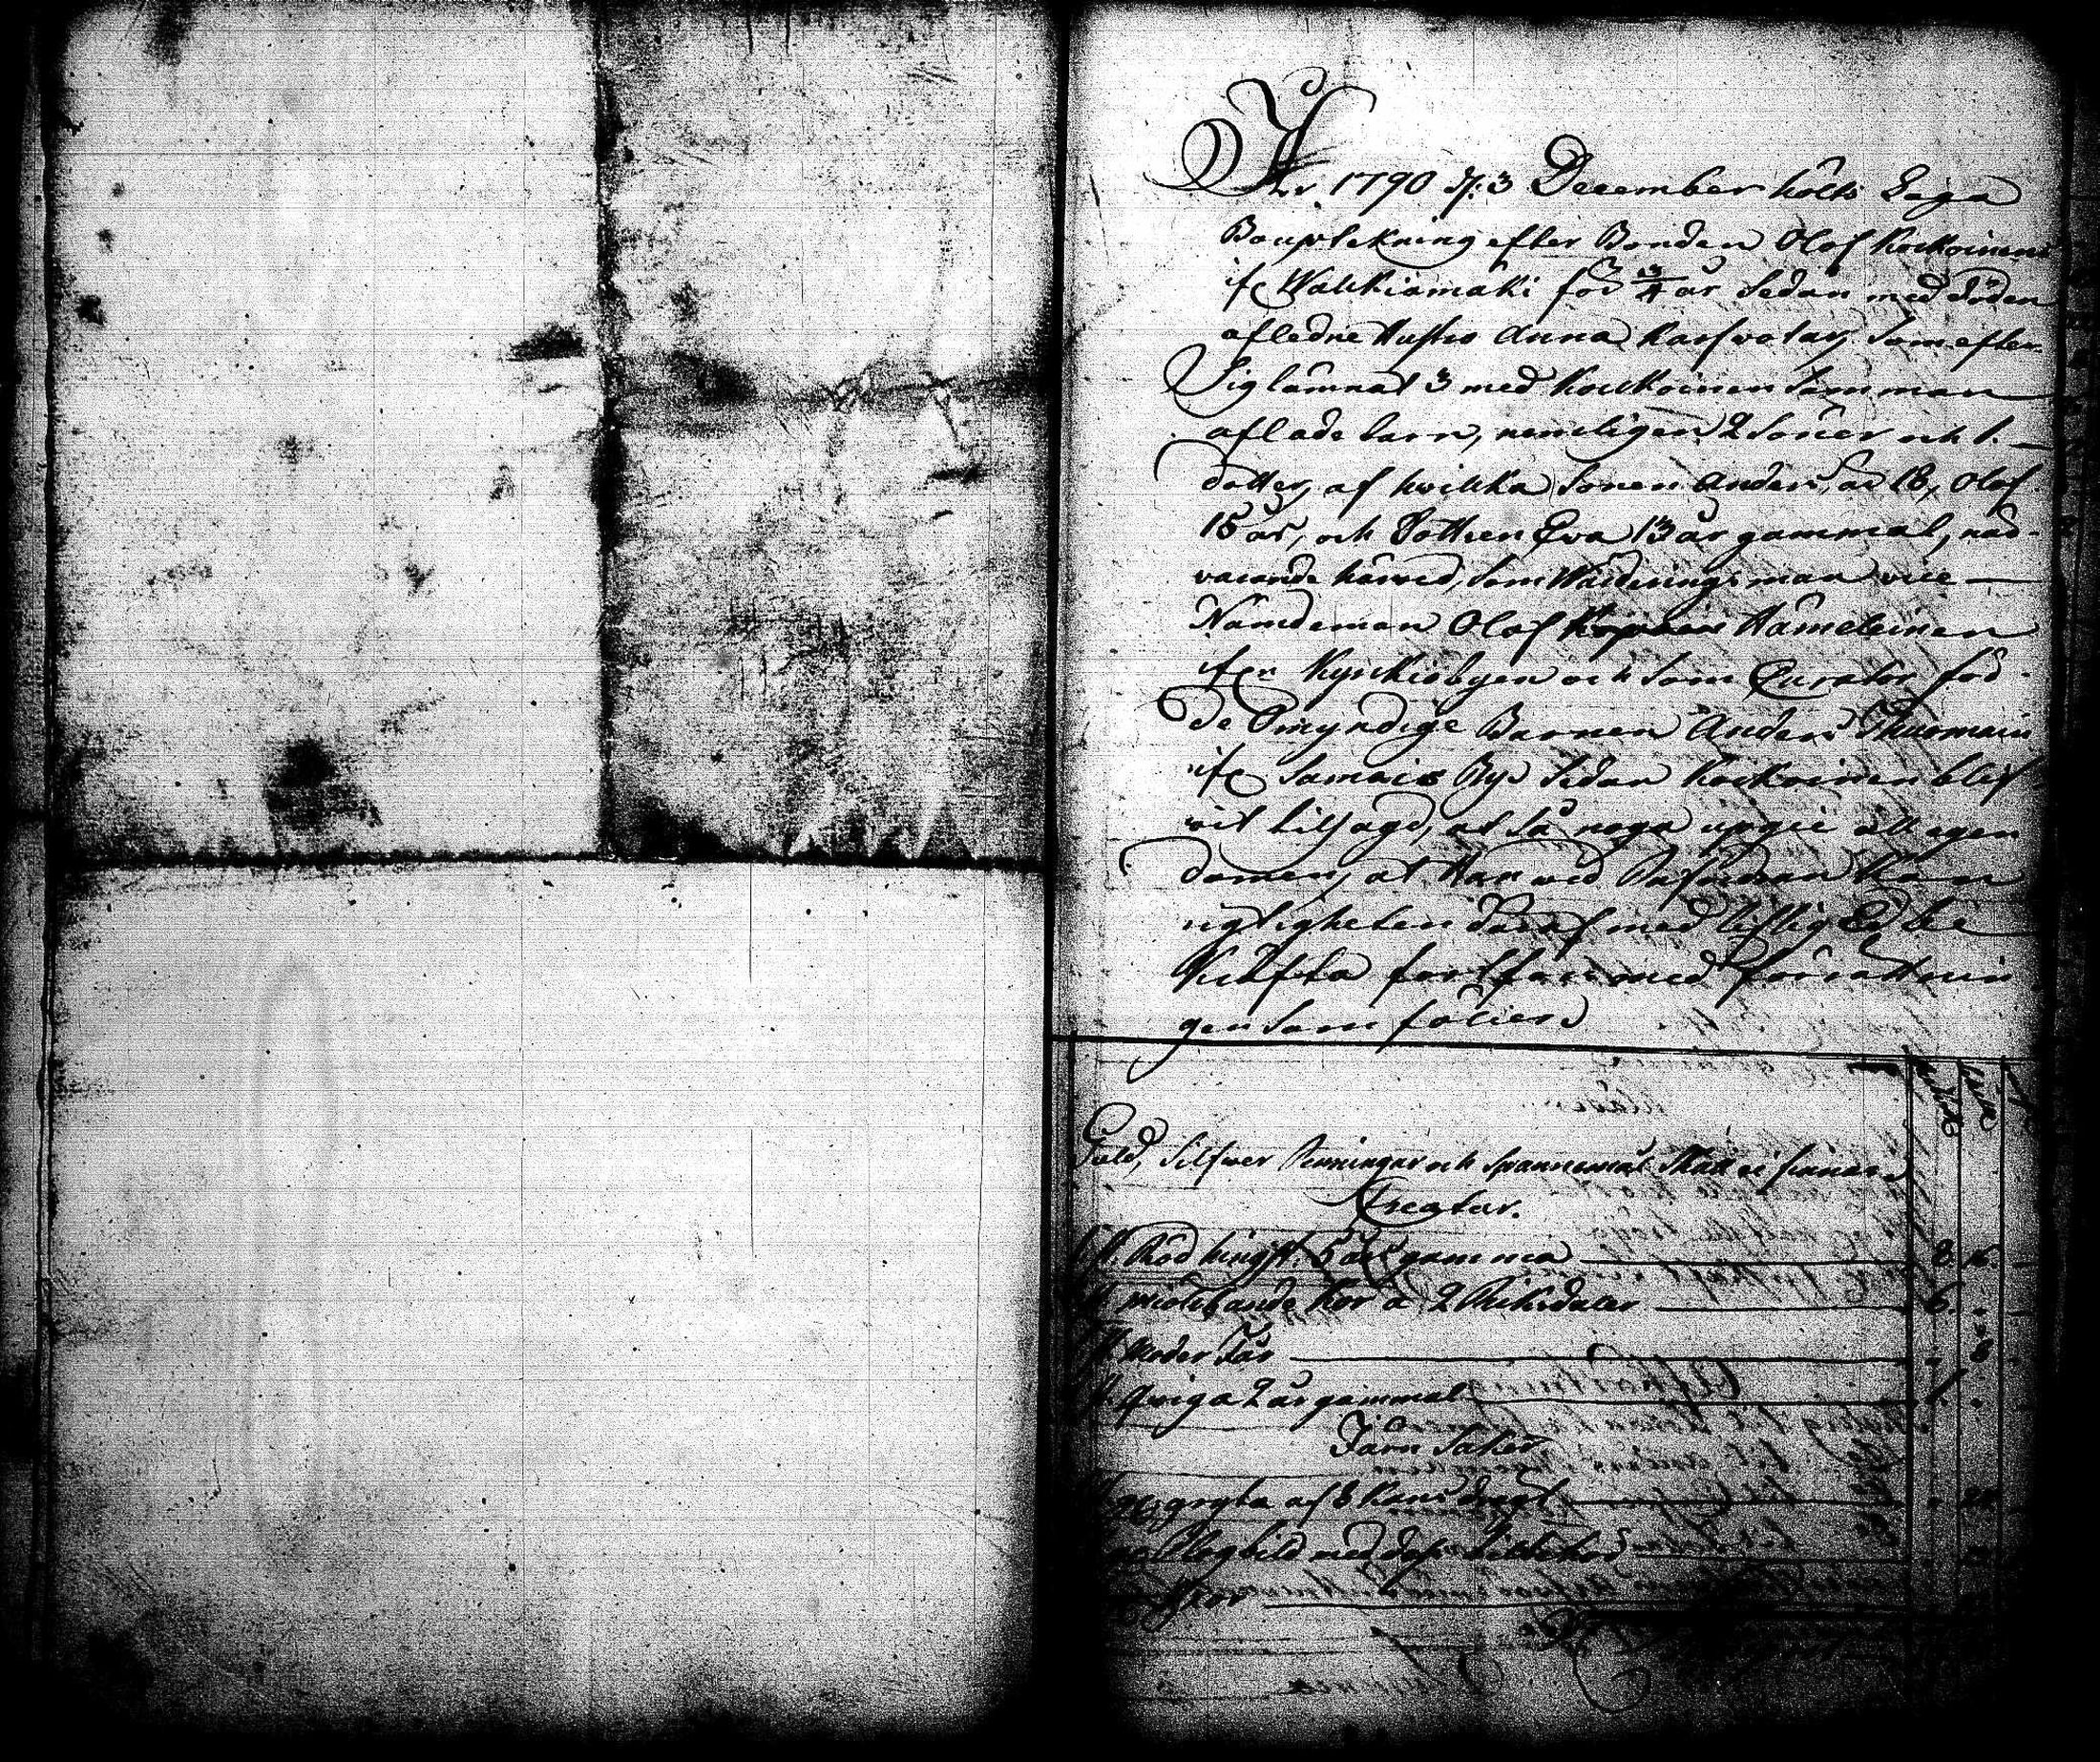 År 1790 d: 3 December hölts Laga
Bouptekning efter Bonden Olof Kockoinens
if: Walkiamäki för 3/4 år sedan med döden
afledne Hustru Anna Karfwotar, som efter
Sig lämnat 3 med Kockoinen samman
aflade barn, nemligen 2 Söner och 1.
dotter, af hwilka Sonen Anders, är 18, Olof
15 år, och Dottren Ewa 13 år gammal, när-
warande härwid, som Wärderingsman vice
Nämdeman Olof Hämeleinen
ifrn byen och som Curator för
de Omyndige Barnen Anders
if: Samma By, Sedan Kockoinen blef
wit tilsagd, at så noga upgie all egen
domen, at Han wid kan
rigtigheten däraf med liflig Ed be
kräfta fortfors med förrättnin
gen som fölier.
Guld, Silfwer Penningar och Spannemål skall ei finnas
Creatur.
1 st Röd hingst 5 år gammal 8 16
miölkande Kor a 2 Riksdaler 6 .
Moder Får . 8
Qwiga 2 år gammal 1. .
Järn Saker.
gryta af 3 Kans drägt
Plogbill med